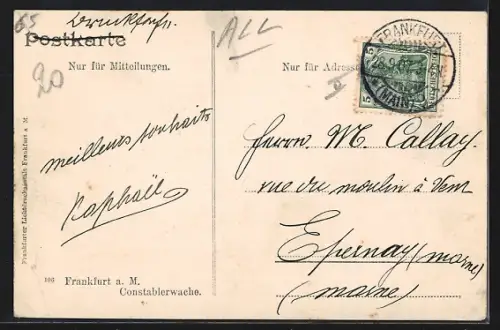 65
Drucksache.
Postkarte
ALL
20
Nur für Mitteilungen.
Nur für Adresse
FRANKFURT
(MAIN)
5
5
meilleurs souhaits
Raphaël
Herrn M. Callay.
rue du moulin à Vent
Epernay (marne)
(marne)
106 Frankfurt a. M.
Constablerwache.
Frankfurter Lichtdruckanstalt Frankfurt a. M.